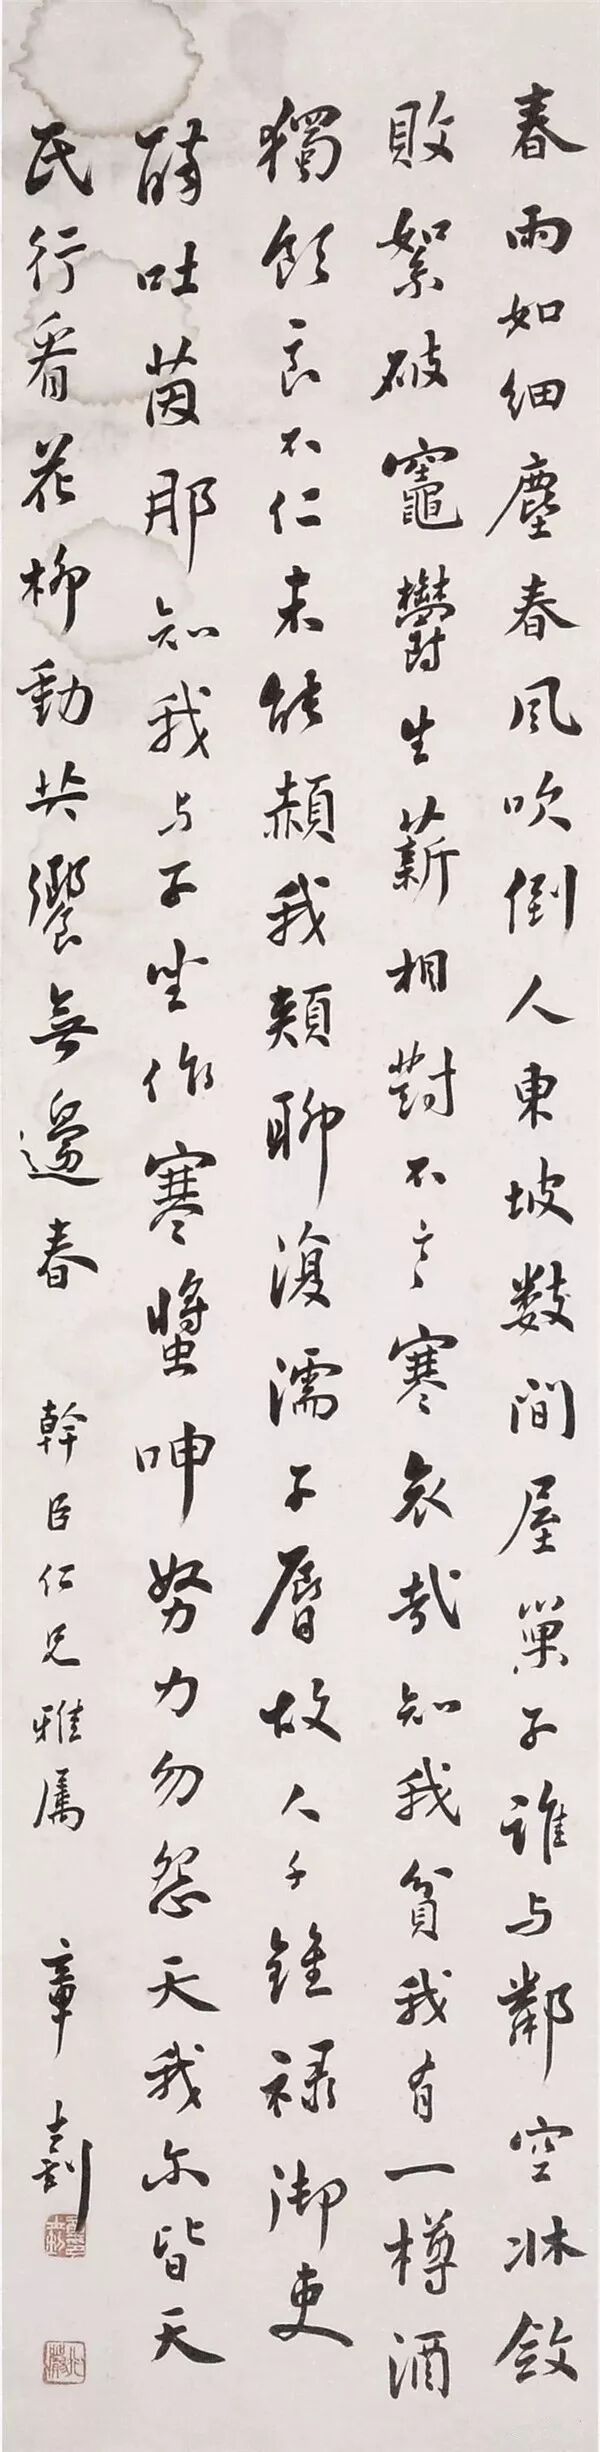 春雨如細塵春風吹倒人東坡数間屋巢子誰与鄰空牀斂
敗絮破竈鬱生薪相對不言寒哀哉知我貧我有一樽酒
獨飲良不仁未能頳我頰聊復濡子脣故人千鍾祿御吏
醉吐茵那知我与子坐作寒螿呻努力勿怨天我尔皆天
民行看花柳動共饗無邊春
幹臣仁兄雅属
章士釗